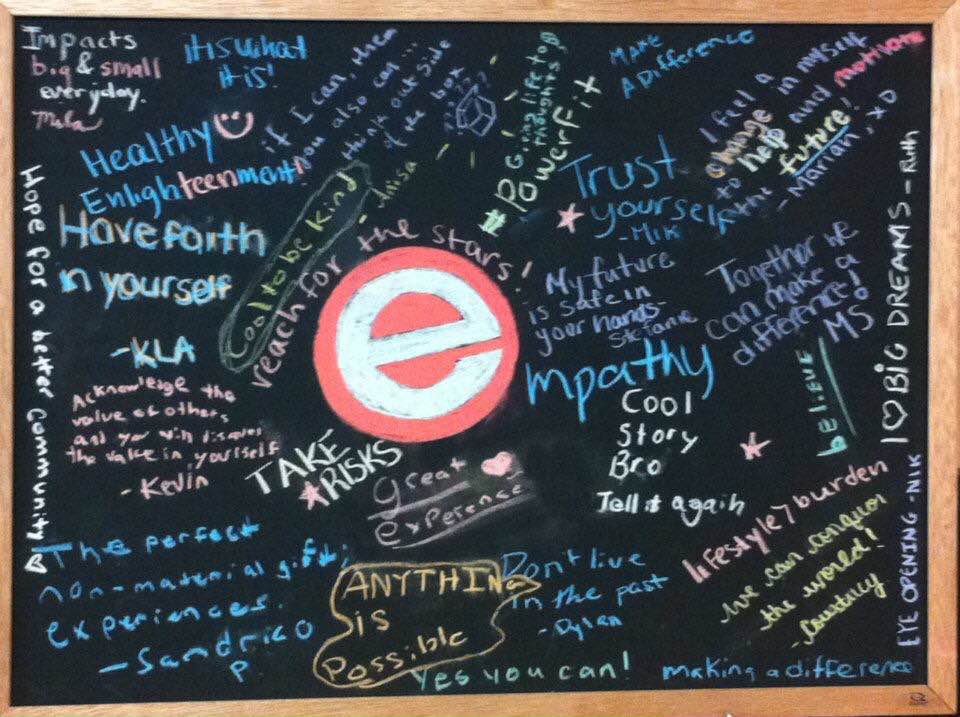 Impacts
big & small
everyday.
it is what
it is!
if I can, then
you also can...
think out side
of the box
Going life to
thoughts
#POwerFit
MAKE
A Difference
I feel a
change in myself
to help and motivate
the future!
- Marian, XD
Healthy
Enlighteenment!
Cool to be kind
Trust
yourself
- MIK
Have faith
in yourself
- KLA
reach for the stars!
e
My future
is safe in
your hands -
Stefanie
Together we
can make a
difference!
MS.
believe
I ♡ BIG DREAMS - Ruth
Hope for a better Community ♡
mpathy
Cool
Story
Bro
Tell it again
Acknowledge the
value of others
and you will
the value in yourself
- Kevin
TAKE
RISKS
Great
experence
lifestyle 7 burden
we can conquor
the world!
- Courtney
EYE OPENING - NIK
The perfect
non-material gift;
experiences.
- Sandrico
P
ANYTHING
is
Possible
Don't live
in the past
- Dylan
Yes you can!
making a difference